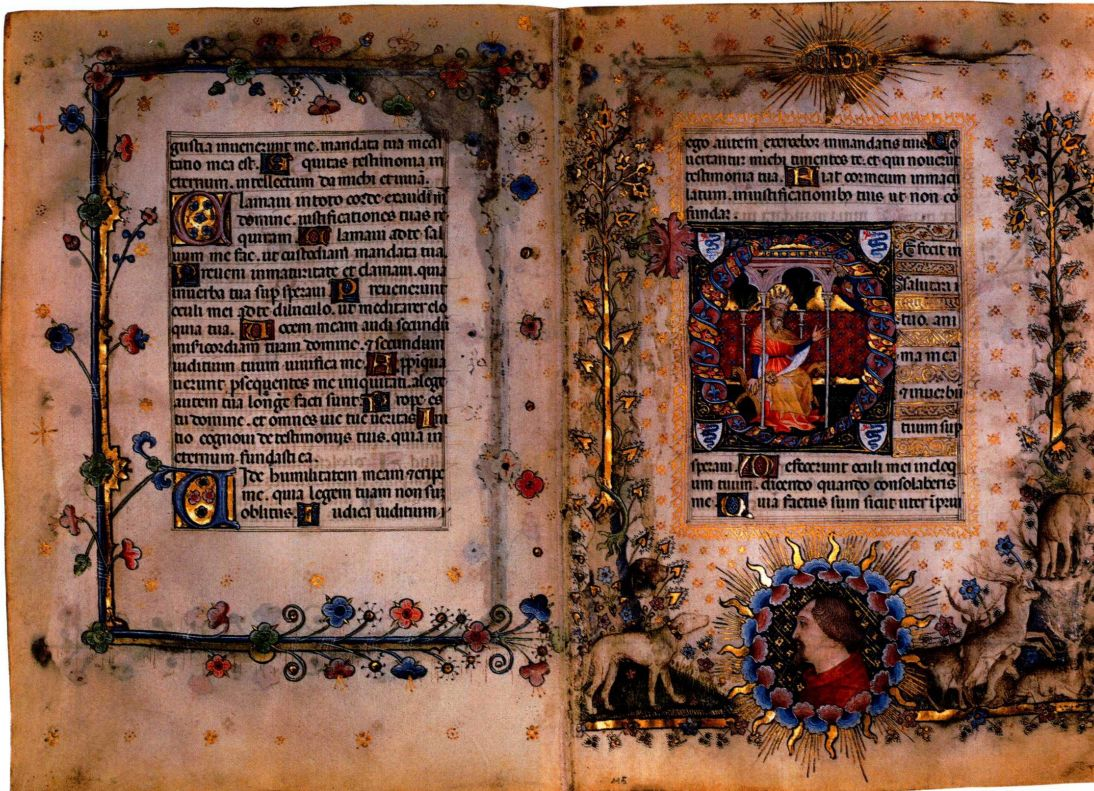 gustia inuenerunt me. mandata tua medi
tatio mea est. Equitas testimonia in
eternum. intellectum da michi et uiuā.
Clamaui in toto corde exaudi m
domine. iustificationes tuas re
quiram. Clamaui ad te sal
uum me fac. ut custodiam mandata tua.
Preueni in maturitate et clamaui. quia
inuerba tua sup speraui Preuenerunt
oculi mei ad te diluculo. ut meditarer elo
quia tua. Uocem meam audi secundū
misicordiam tuam domine. ⁊ secundum
iuditium tuum uiuifica me Appiqua
uerunt psequentes me iniquitati. alege
autem tua longe facti sunt Prope es
tu domine. et omnes uie tue ueritas In
itio cognoui de testimonijs tuis. quia in
eternum fundasti ea.
Uide humilitatem meam ⁊ eripe
me. quia legem tuam non sum
oblitus Iudica iuditium
ego autem exercebor inmandatis tuis Cō
uertantur michi timentes te. et qui nouerūt
testimonia tua. Fiat cor meum inmacu
latum. iniustificationibꝫ tuis ut non cō
fundar.
Defecit in
salutari
tuo. ani
ma mea
⁊ inuerbū
tuum sup
speraui Defecerunt oculi mei ineloq
ium tuum. dicendo quando consolaberis
me Quia factus sum sicut uter ipru